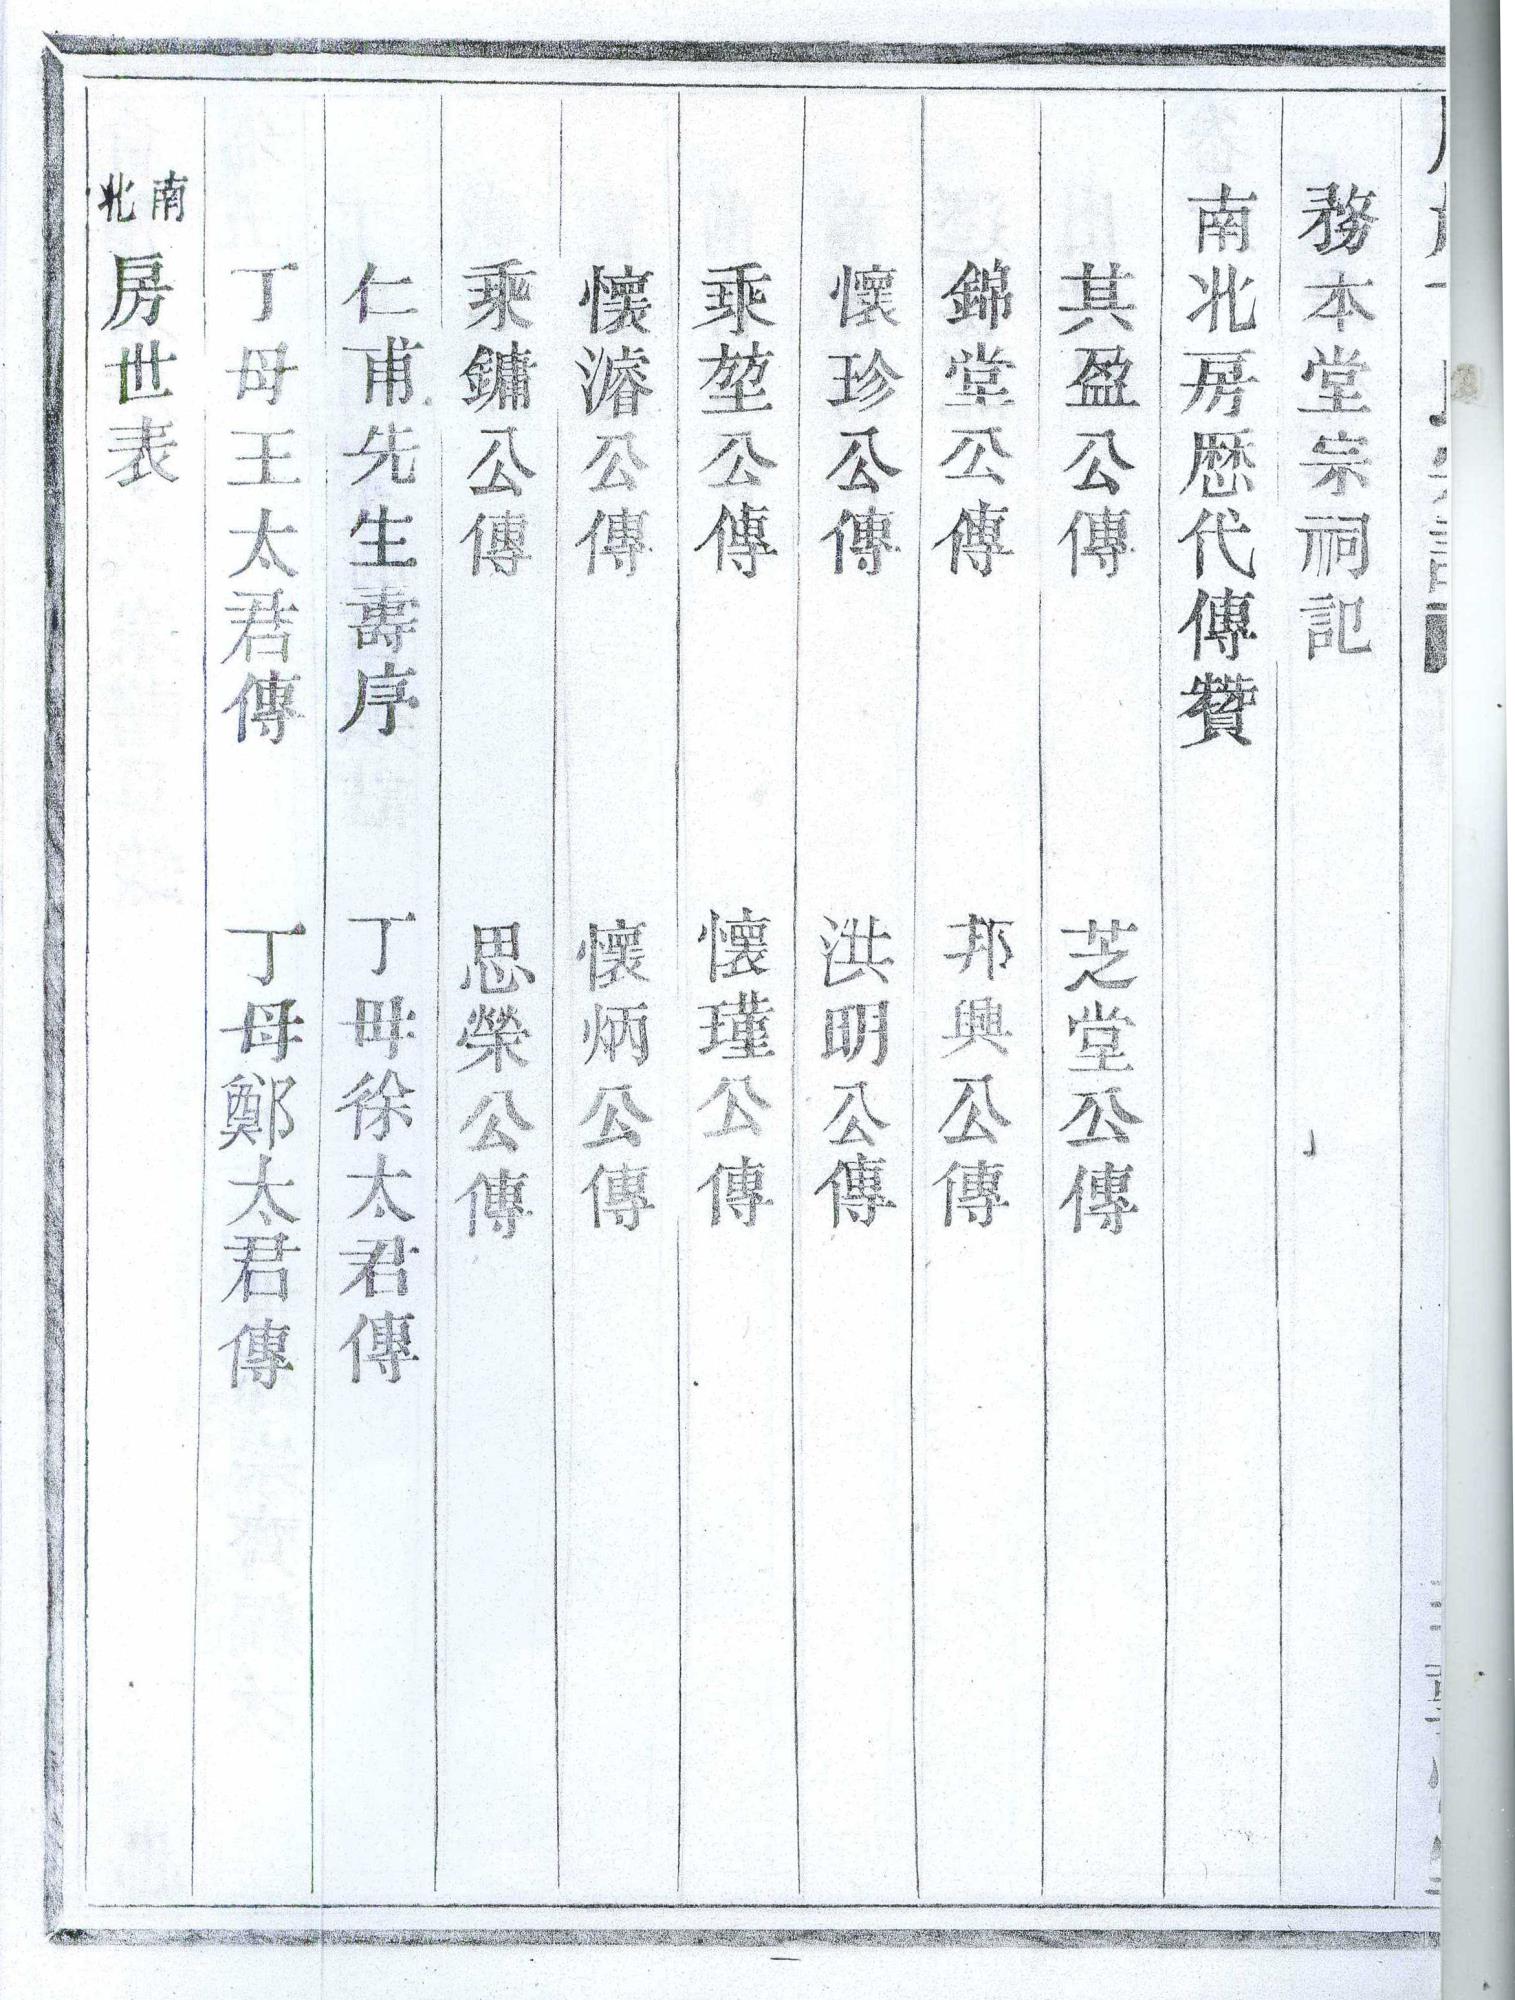 務本堂宗祠記
南北房歷代傳贊
其盈公傳　芝堂公傳
錦堂公傳　邦興公傳
懷珍公傳　洪明公傳
乘堃公傳　懷瑾公傳
懷濬公傳　懷炳公傳
乘鏞公傳　思榮公傳
仁甫先生壽序　丁母徐太君傳
丁母王太君傳　丁母鄭太君傳
南北房世表